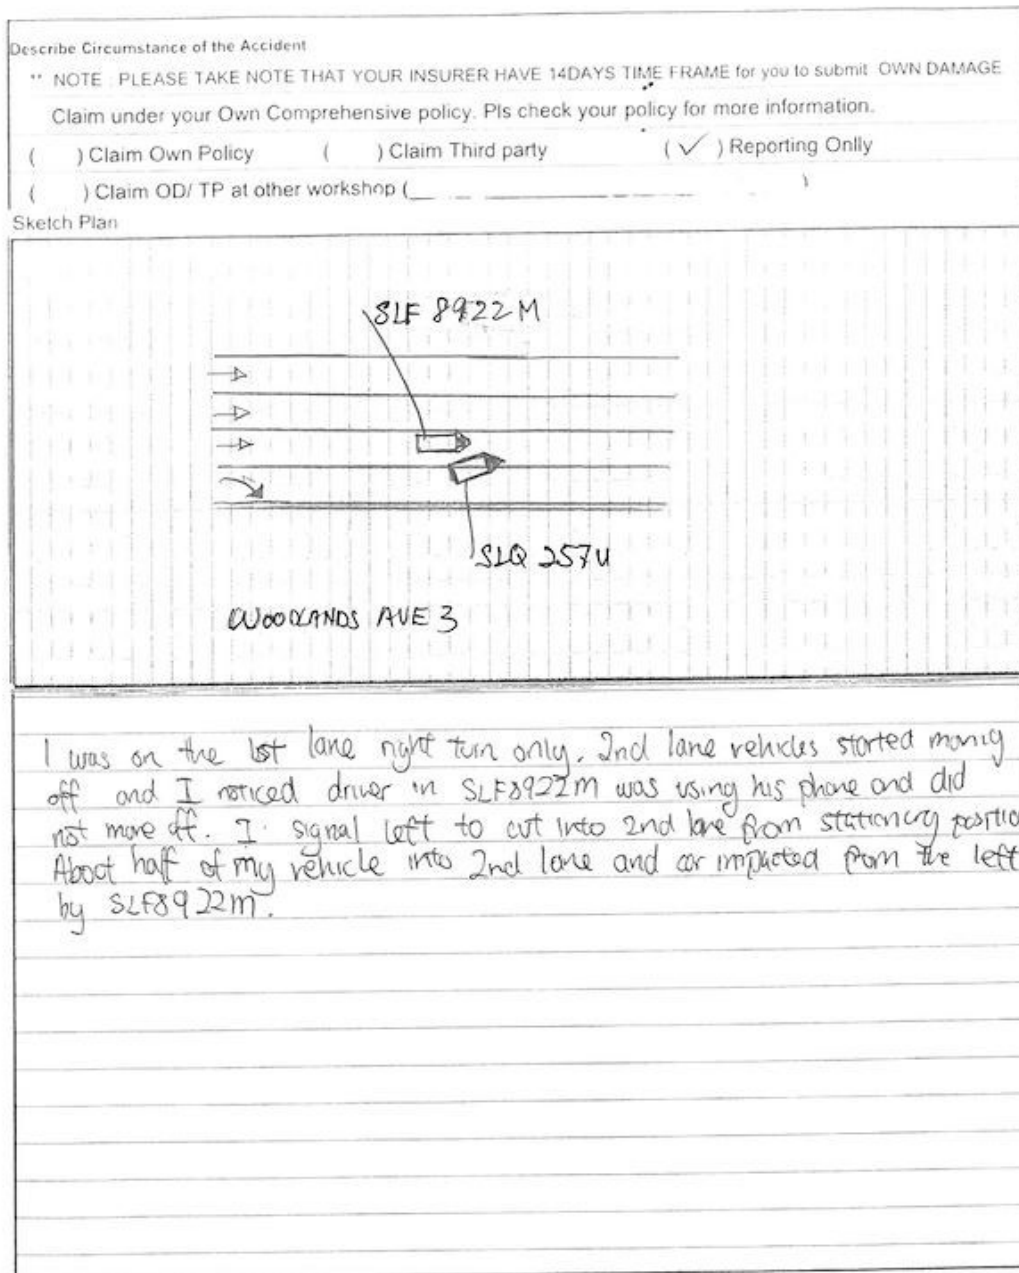 Describe Circumstance of the Accident
** NOTE : PLEASE TAKE NOTE THAT YOUR INSURER HAVE 14DAYS TIME FRAME for you to submit OWN DAMAGE
Claim under your Own Comprehensive policy. Pls check your policy for more information.
( ) Claim Own Policy ( ) Claim Third party ( ✓ ) Reporting Onlly
( ) Claim OD/ TP at other workshop ( )
Sketch Plan
SLF 8922M
SLQ 257U
WOODLANDS AVE 3
I was on the 1st lane right turn only. 2nd lane vehicles started moving
off and I noticed driver in SLF8922M was using his phone and did
not move off. I signal left to cut into 2nd lane from stationery positio
About half of my vehicle into 2nd lane and car impacted from the left
by SLF8922M.